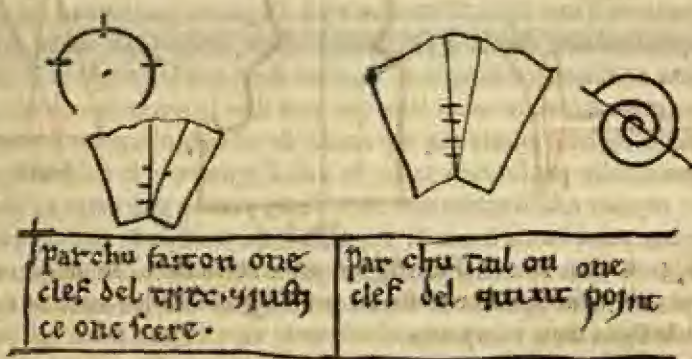 Par chu fait on one
clef del
ce one scere.
Par chu tail on one
clef del quint point